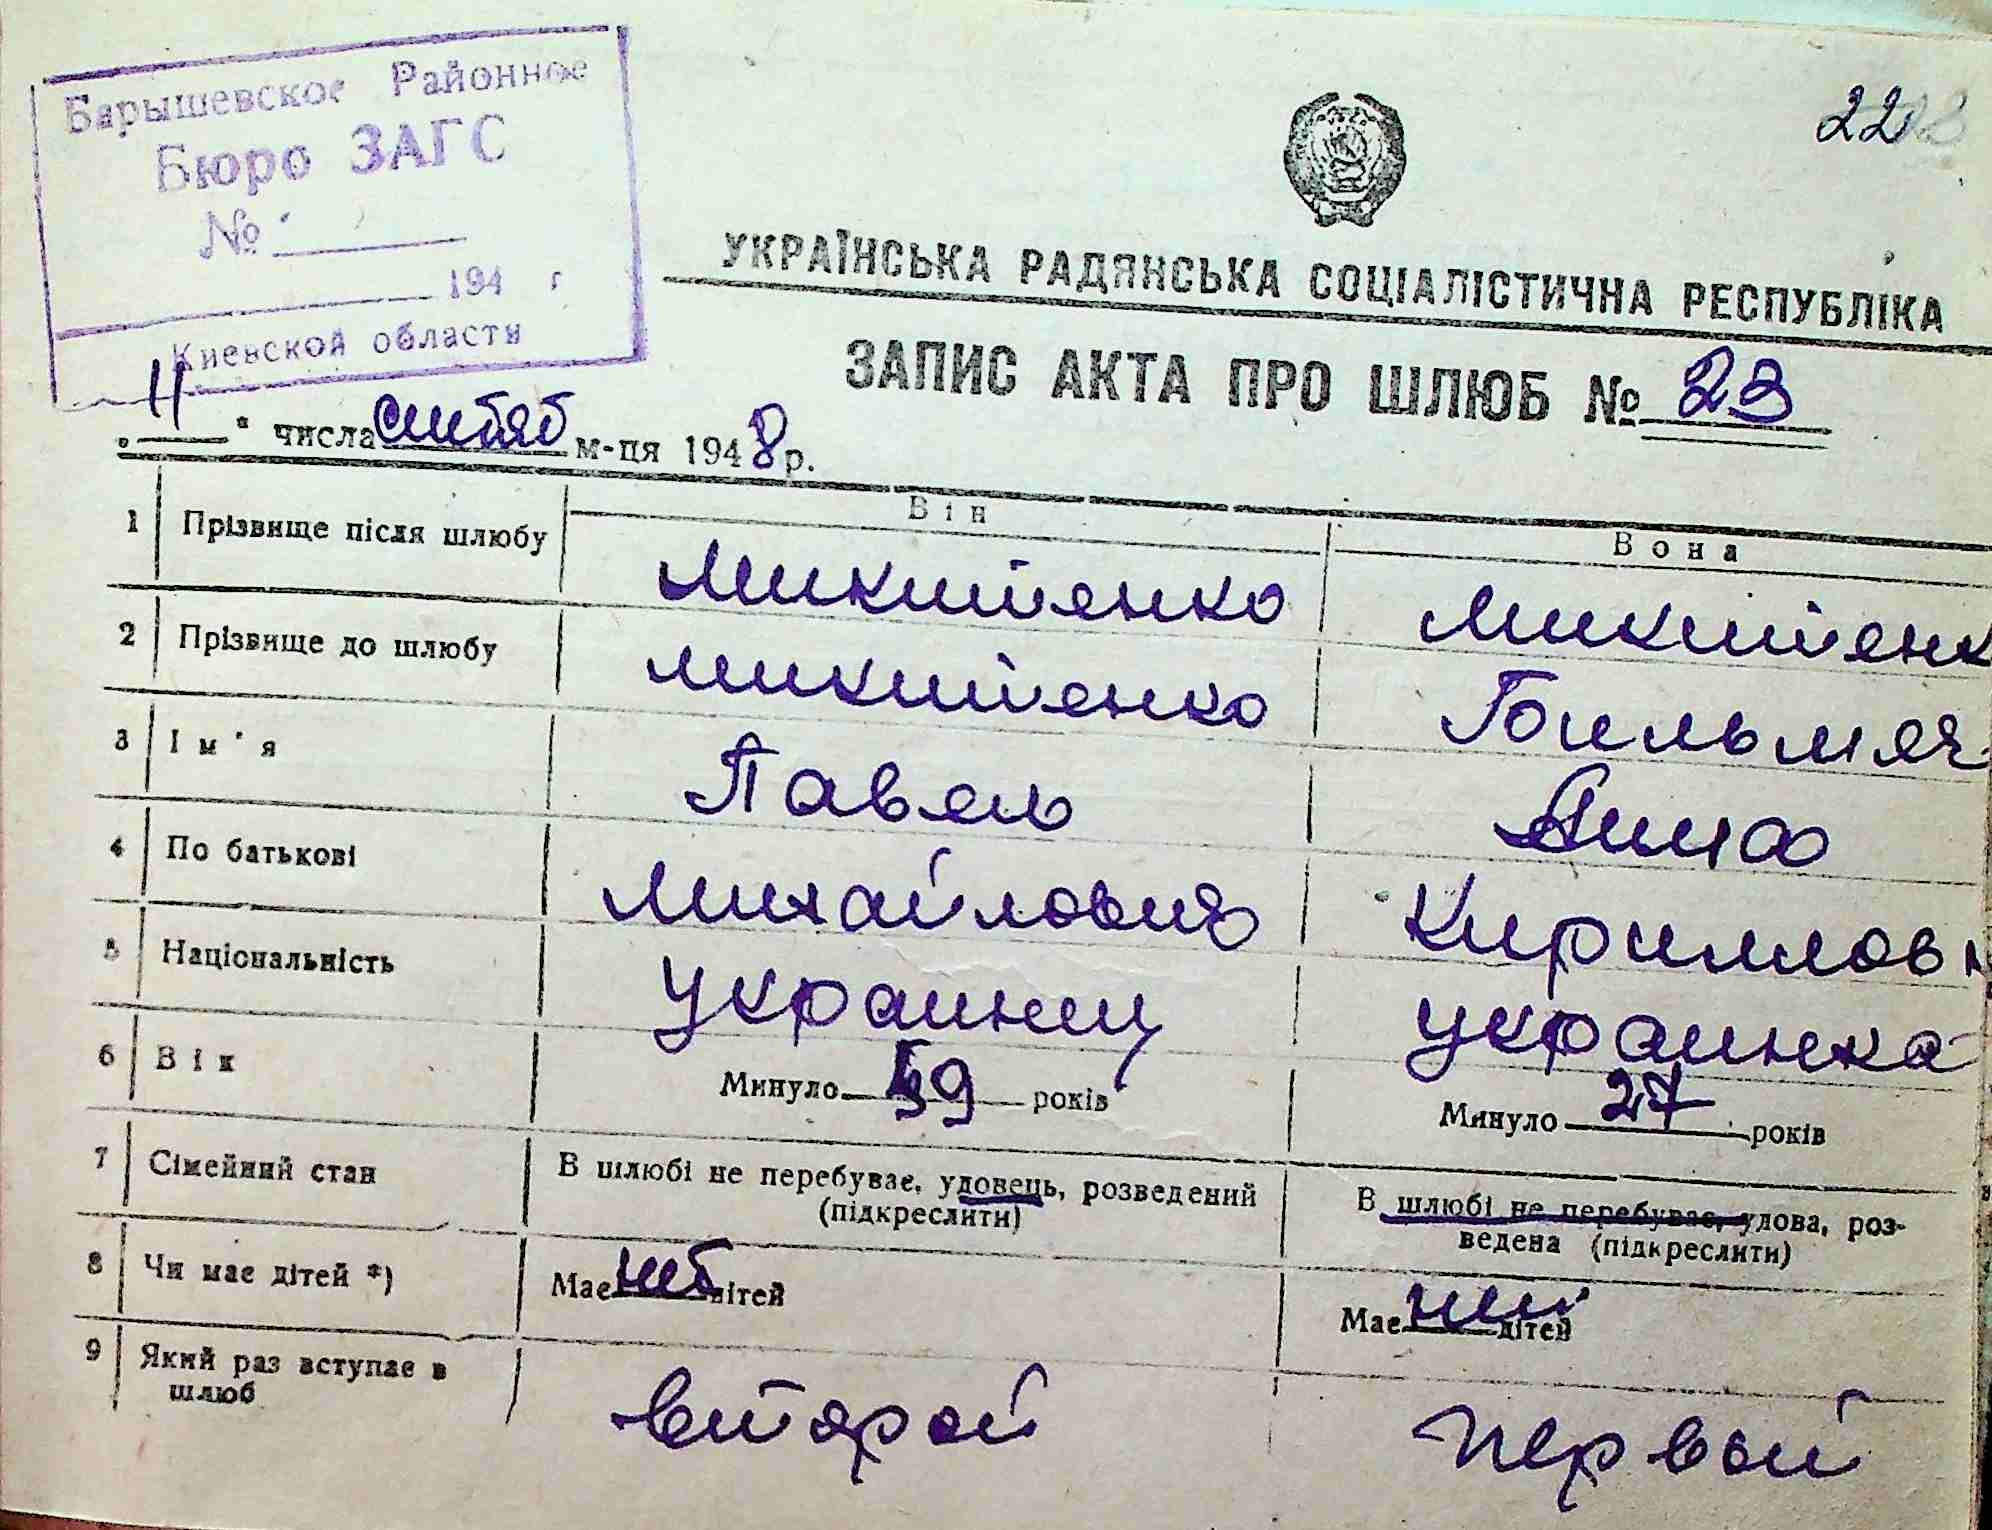 Барышевское Районное
Бюро ЗАГС
№
194 г
Киевской области
22
УКРАЇНСЬКА РАДЯНСЬКА СОЦІАЛІСТИЧНА РЕСПУБЛІКА
ЗАПИС АКТА ПРО ШЛЮБ № 23
„11" числа м-ця 1948 р.
Він Вона
1 Прізвище після шлюбу Микитенко Микитенк
2 Прізвище до шлюбу Микитенко
3 Ім'я Павел Анна
4 По батькові Михайлович Кирилловн
5 Національність украинец украинка
6 Вік Минуло 59 років Минуло 27 років
7 Сімейний стан В шлюбі не перебуває, удовець, розведений (підкреслити) В шлюбі не перебуває, удова, роз-
ведена (підкреслити)
8 Чи має дітей *) Має нет дітей Має нет дітей
9 Який раз вступає в
шлюб второй первый